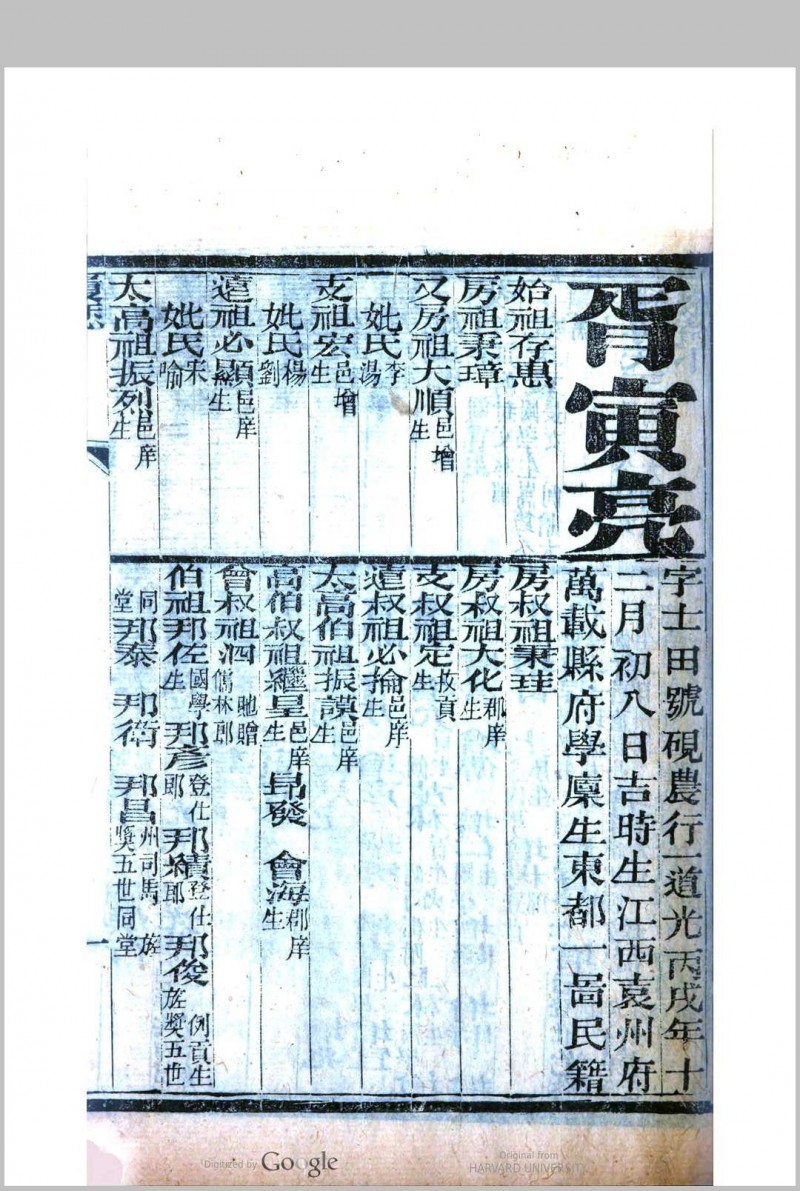 胥寅亮
字士田號硯農行一道光丙戌年十
二月初八日吉時生江西袁州府
萬載縣府學廩生東都一啚民籍
始祖存惠
房祖秉璋
又房祖大順邑增生
妣氏李湯
支祖宏邑增生
妣氏楊劉
遠祖必顯邑庠生
妣氏宋喻
太高祖振烈邑庠生
房叔祖秉珪
房叔祖大化郡庠生
支叔祖定拔貢生
遠叔祖必掄邑庠生
太高伯祖振謨邑庠生
高伯叔祖繼皇邑庠生 昂發 會海郡庠生
曾叔祖泗馳贈儒林郎
伯祖邦佐國學生 邦彥登仕郎 邦績登仕郎 邦俊例貢生旌獎五世
同堂 邦泰 邦衛 邦昌州司馬旌獎五世同堂
一
Digitized by Google
Original from
HARVARD UNIVERSITY